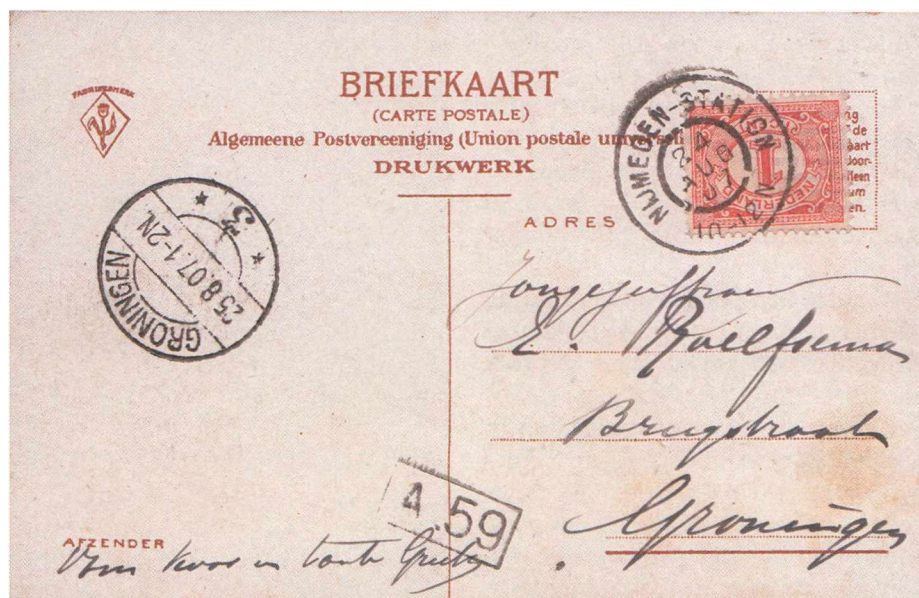 FABRIEKSMERK
BRIEFKAART
(CARTE POSTALE)
Algemeene Postvereeniging (Union postale universelle)
DRUKWERK
NIJMEGEN-STATION
24 AUG 07
10-12 N
1
NEDERLAND
GRONINGEN
25.8.07.1-2N.
* 3 *
ADRES
Jongejuffrouw
E. Roelfsema
Brugstraat
Groningen
4 59
AFZENDER
Oom Koos en tante